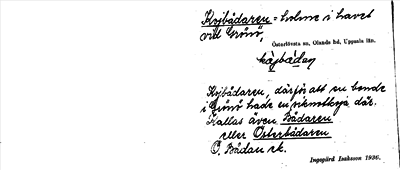 Kojbådaren = holme i havet
vid Gräsö,
Österlövsta sn, Olands hd, Uppsala län.
kåjbådan
Kojbådaren, därför att en bonde
i Gräsö hade en där.
Kallas även Bådaren
eller Österbådaren
Ö. Bådan rk.
Ingegärd Isaksson 1936.